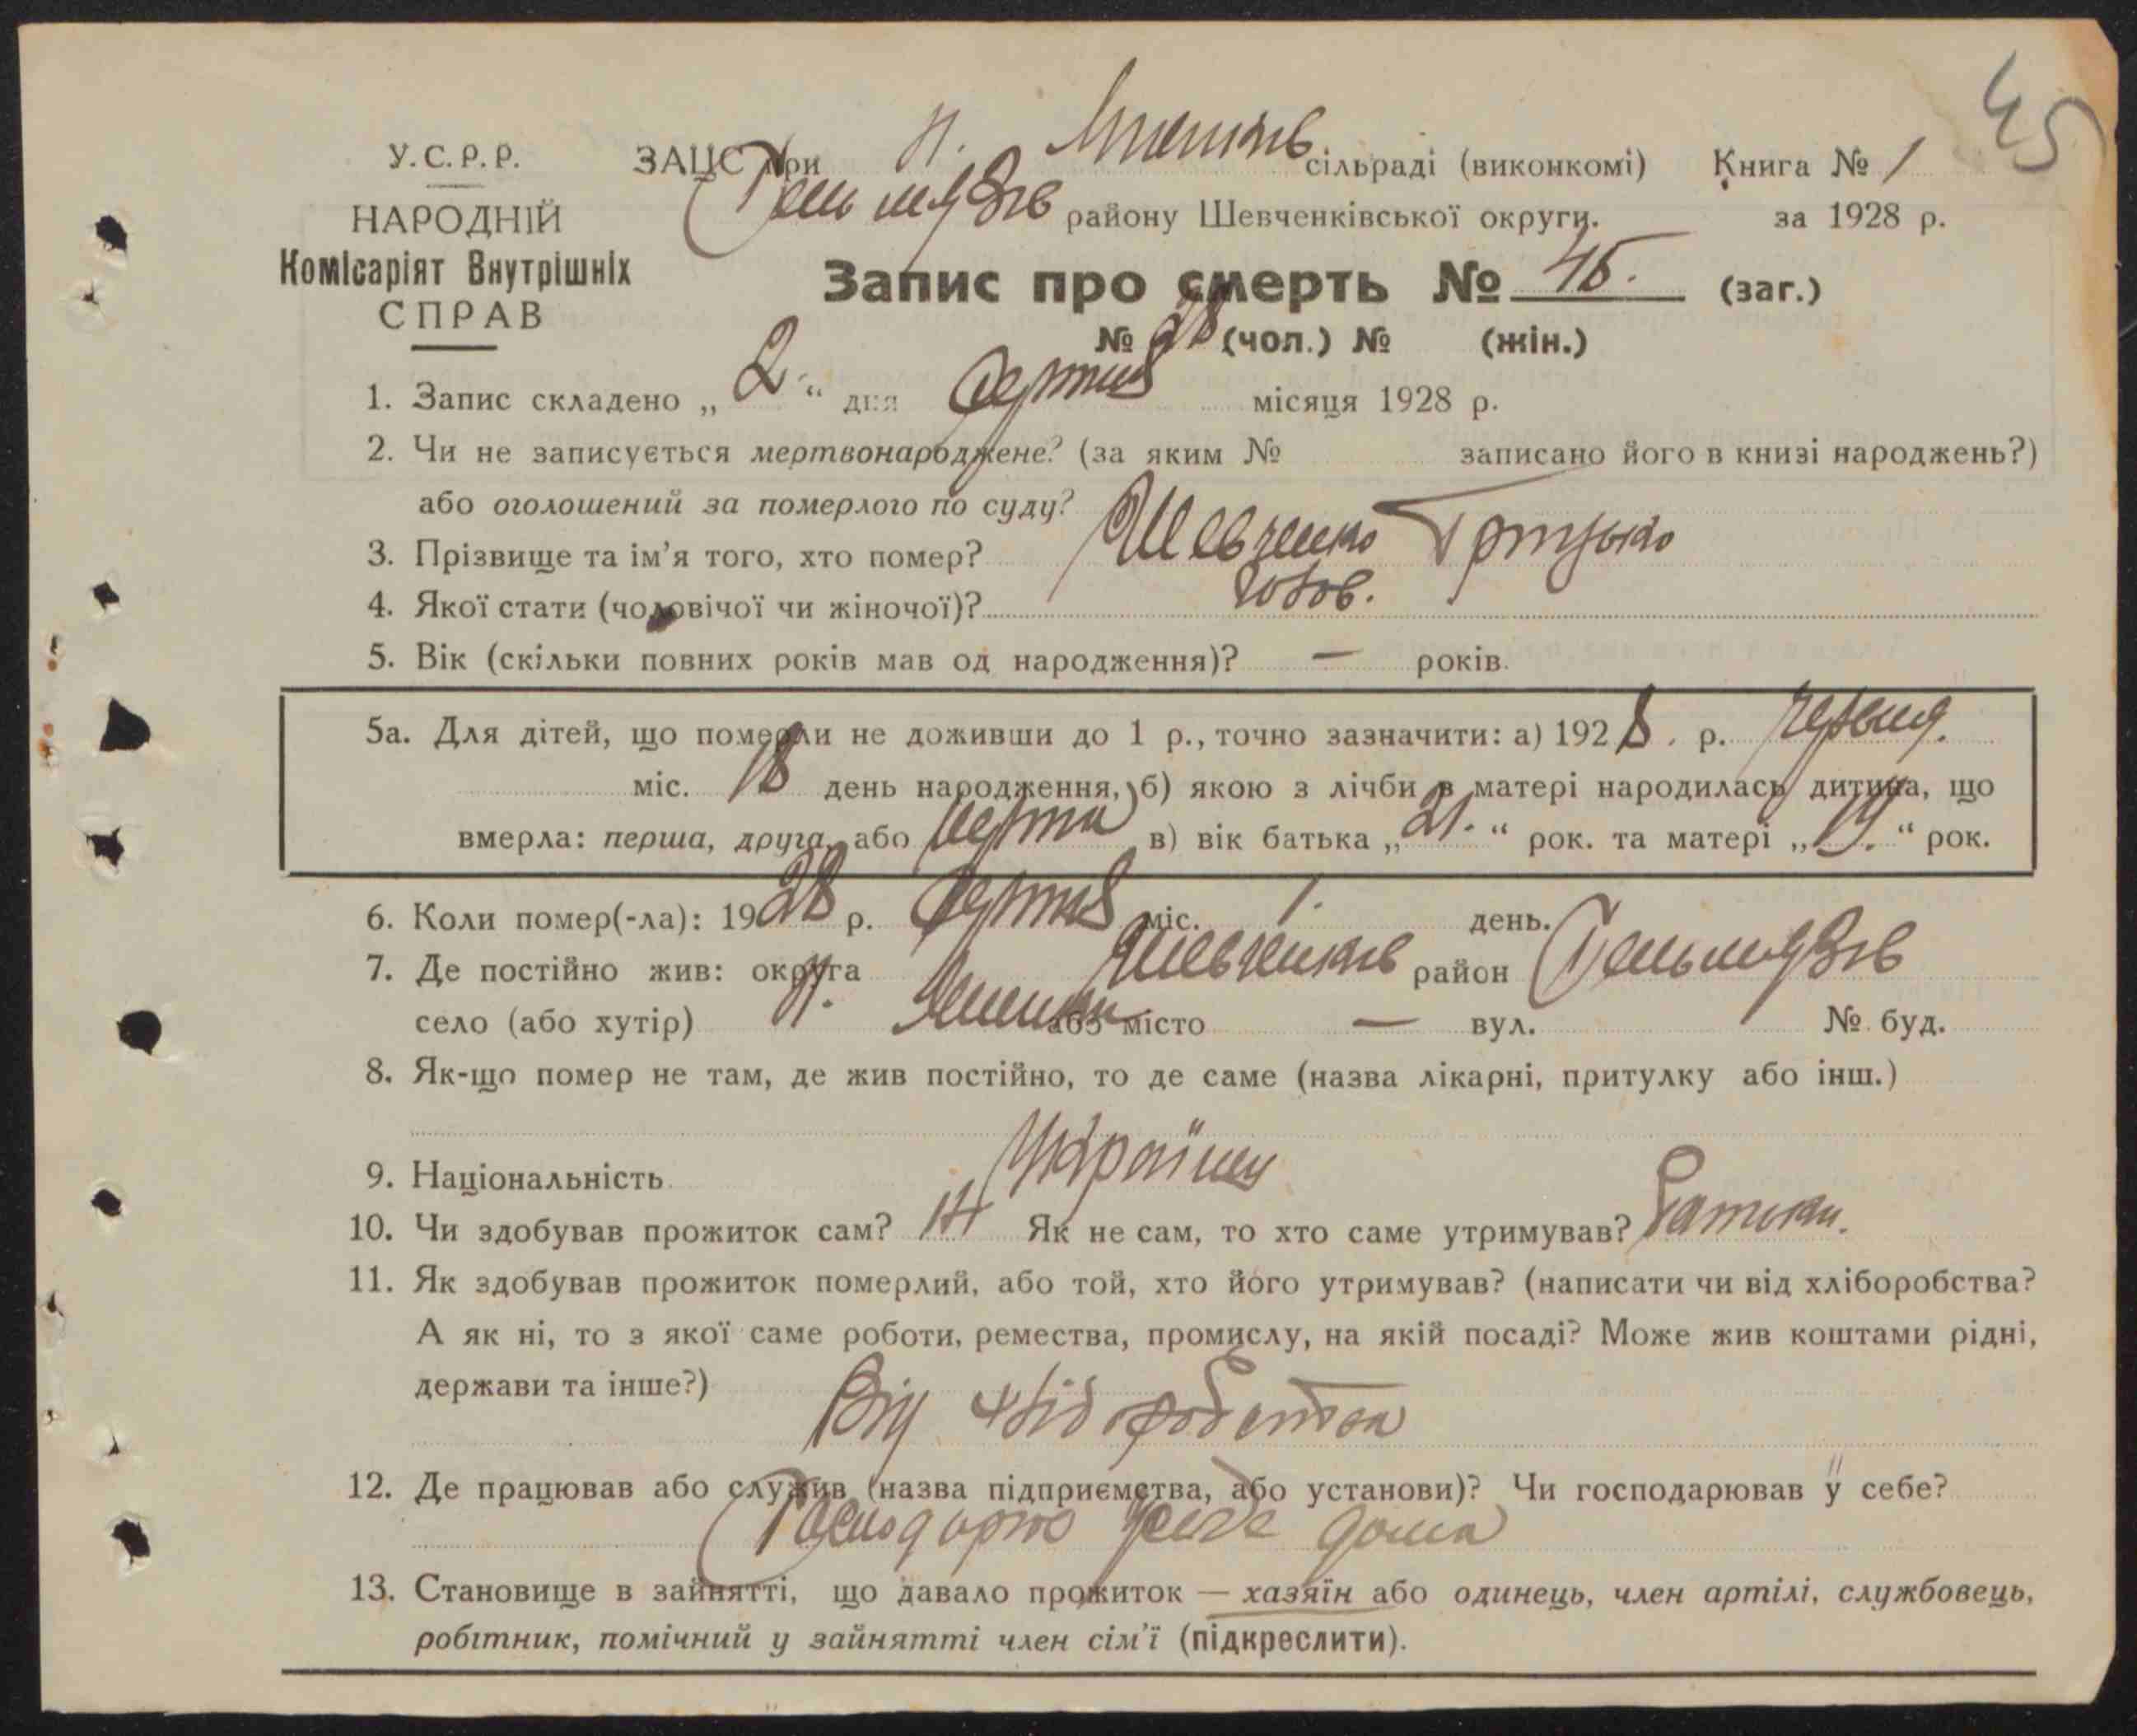 45
У.С.Р.Р.
НАРОДНІЙ
Комісаріят Внутрішніх
СПРАВ
ЗАЦС при Н. сільраді (виконкомі) Книга № 1
Гельмязів району Шевченківської округи. за 1928 р.
Запис про смерть № 45. (заг.)
№ 28 (чол.) № (жін.)
1. Запис складено „ 2 “ дня Серпня місяця 1928 р.
2. Чи не записується мертвонароджене? (за яким № записано його в книзі народжень?)
або оголошений за померлого по суду?
3. Прізвище та ім’я того, хто помер? Шевченко Грицько
4. Якої стати (чоловічої чи жіночої)? чолов.
5. Вік (скільки повних років мав од народження)? — років.
5а. Для дітей, що померли не доживши до 1 р., точно зазначити: а) 1928. р. червня.
міс. 18 день народження, б) якою з лічби в матері народилась дитина, що
вмерла: перша, друга, або перша в) вік батька „ 21. “ рок. та матері „ 19. “ рок.
6. Коли помер(-ла): 1928 р. Серпня міс. 1. день.
7. Де постійно жив: округа Шевченків район Гельмязів
село (або хутір) Н. або місто — вул. № буд.
8. Як-що помер не там, де жив постійно, то де саме (назва лікарні, притулку або інш.)
9. Національність Українец
10. Чи здобував прожиток сам? Ні Як не сам, то хто саме утримував? Батьки.
11. Як здобував прожиток померлий, або той, хто його утримував? (написати чи від хліборобства?
А як ні, то з якої саме роботи, ремества, промислу, на якій посаді? Може жив коштами рідні,
держави та інше?)
Від хліборобства
12. Де працював або служив (назва підприємства, або установи)? Чи господарював у себе?
Господарює у себе дома
13. Становище в зайнятті, що давало прожиток — хазяїн або одинець, член артілі, службовець,
робітник, помічний у зайнятті член сім’ї (підкреслити).